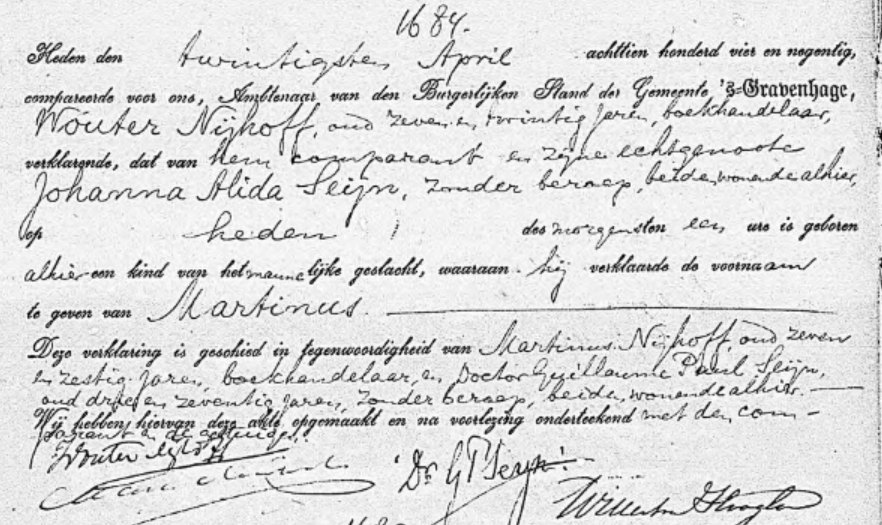 1684.
Heden den twintigsten April achttien honderd vier en negentig,
compareerde voor ons, Ambtenaar van den Burgerlijken Stand der Gemeente 's-Gravenhage,
Wouter Nijhoff, oud zeven en twintig jaren, boekhandelaar,
verklarende, dat van hem comparant en zijne echtgenoote
Johanna Alida Seijn, zonder beroep, beide wonende alhier,
op heden des morgens ten een ure is geboren
alhier een kind van het mannelijke geslacht, waaraan hij verklaarde de voornaam
te geven van Martinus.
Deze verklaring is geschied in tegenwoordigheid van Martinus Nijhoff, oud zeven
en zestig jaren, boekhandelaar, en Doctor Guillaume Paul Seijn,
oud drie en zeventig jaren, zonder beroep, beiden wonende alhier.
Wij hebben hiervan deze akte opgemaakt en na voorlezing onderteekend met den com-
parant en de getuigen.
Wouter Nijhoff
Dr. G P Seijn.